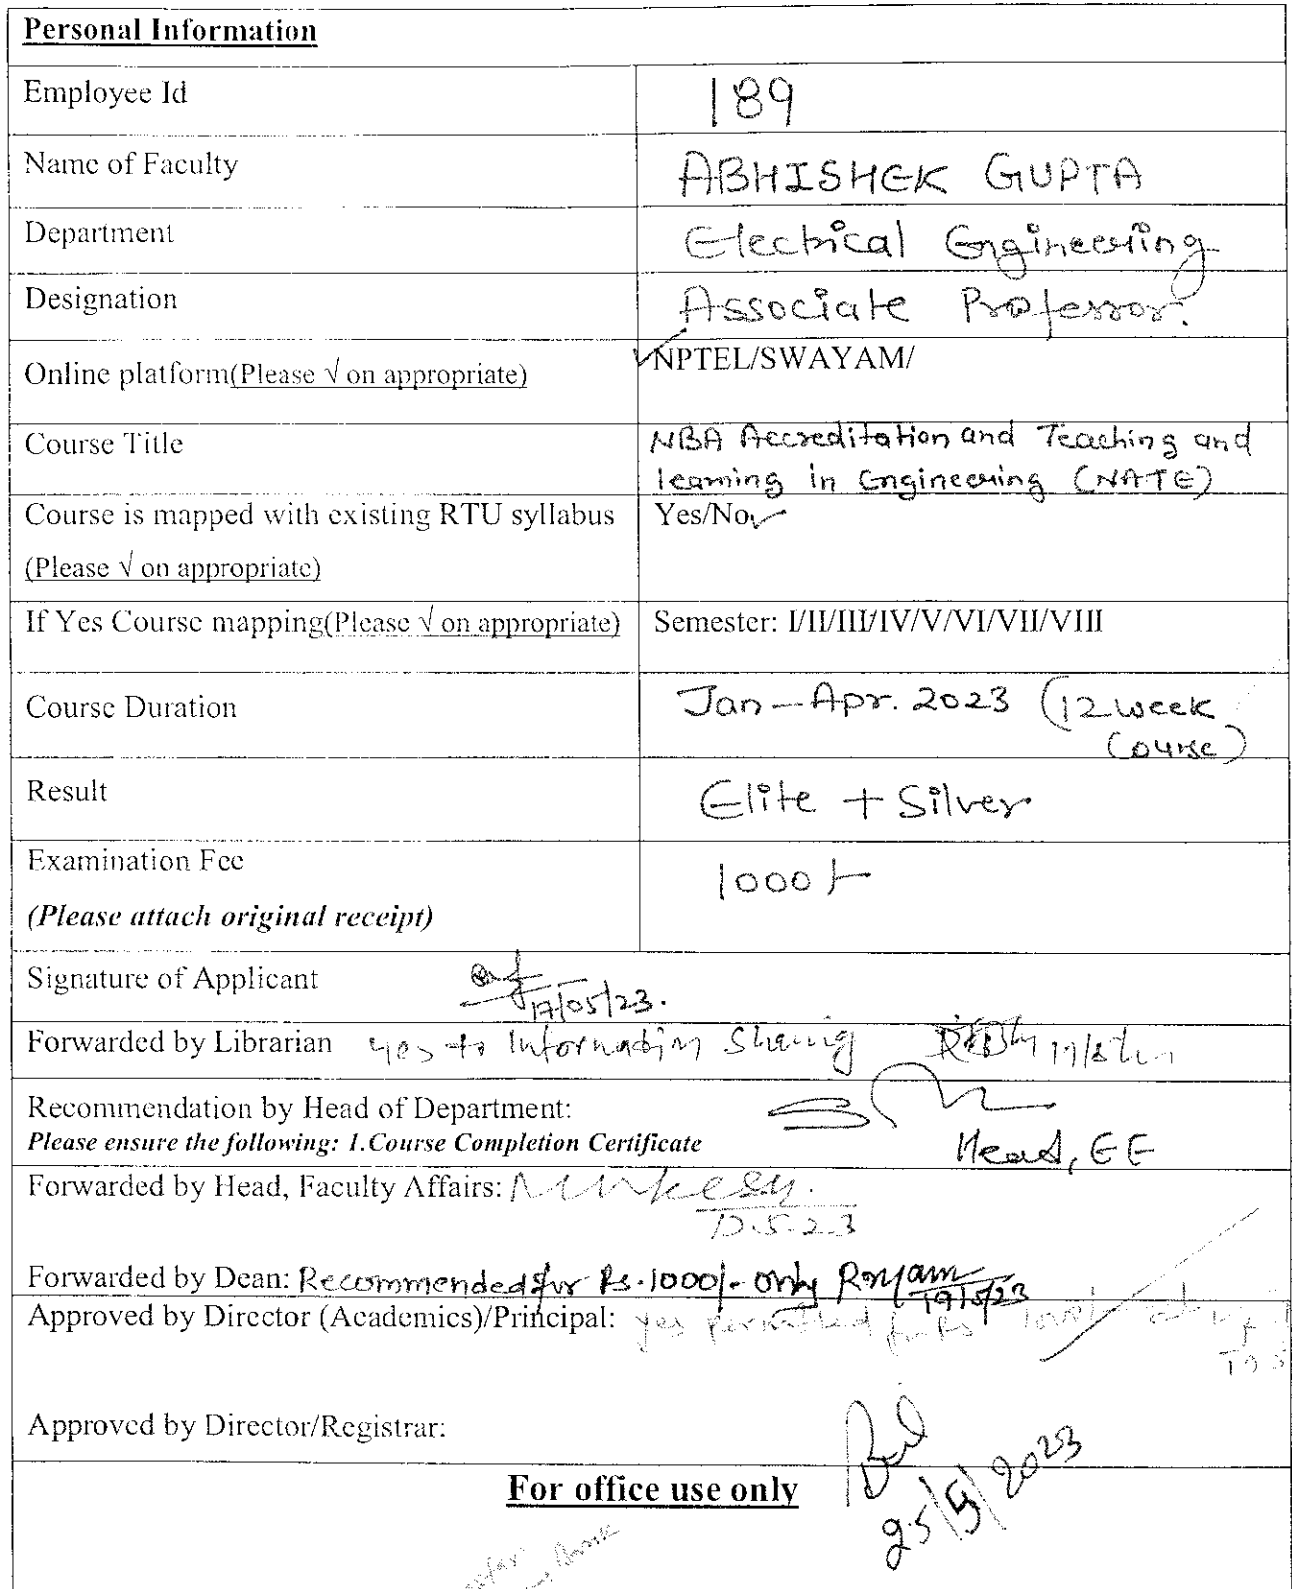 Personal Information
Employee Id 189
Name of Faculty ABHISHEK GUPTA
Department Electrical Engineering
Designation Associate Professor.
Online platform(Please √ on appropriate) ✓NPTEL/SWAYAM/
Course Title NBA Accreditation and Teaching and
learning in Engineering (NATE)
Course is mapped with existing RTU syllabus Yes/No✓
(Please √ on appropriate)
If Yes Course mapping(Please √ on appropriate) Semester: I/II/III/IV/V/VI/VII/VIII
Course Duration Jan-Apr. 2023 (12 week
Course)
Result Elite + Silver
Examination Fee 1000/-
(Please attach original receipt)
Signature of Applicant
17/05/23.
Forwarded by Librarian yes to Information Sharing
Recommendation by Head of Department:
Please ensure the following: 1.Course Completion Certificate Head, EE
Forwarded by Head, Faculty Affairs: Mukesh.
Forwarded by Dean: Recommended for Rs.1000/- only
19/5/23
Approved by Director (Academics)/Principal: yes permitted for Rs
Approved by Director/Registrar:
25/5/2023
For office use only